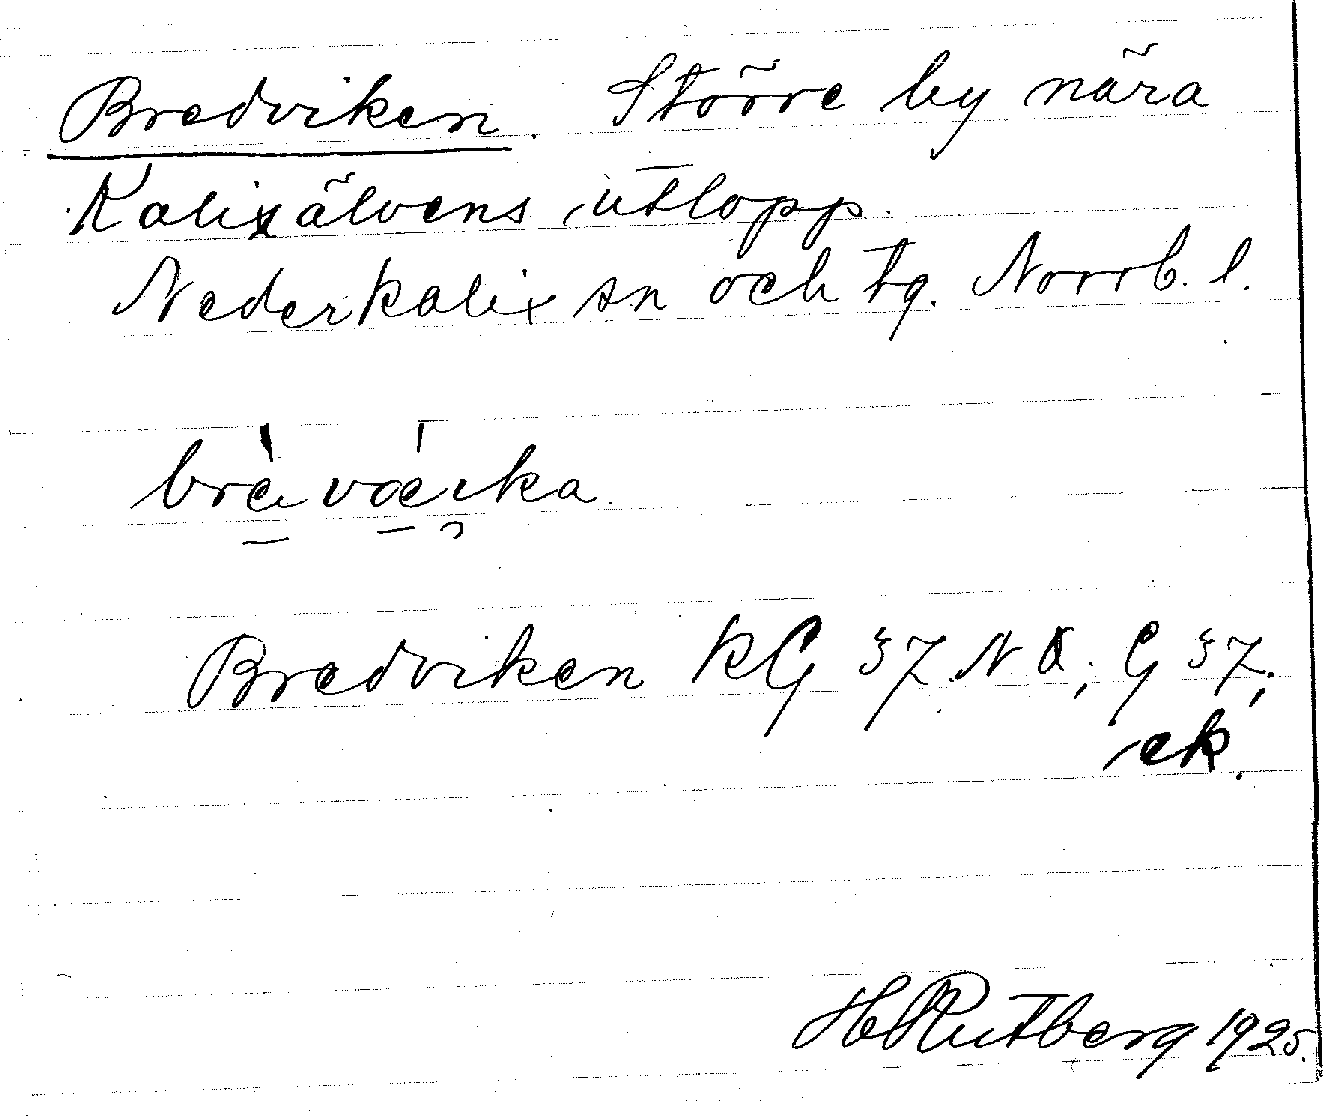 Bredviken. Större by nära
Kalixälvens utlopp.
Nederkalix sn och tg. Norrb. l.
Bredviken KG 37 NO; G 37;
ek.
H Rutberg 1925.